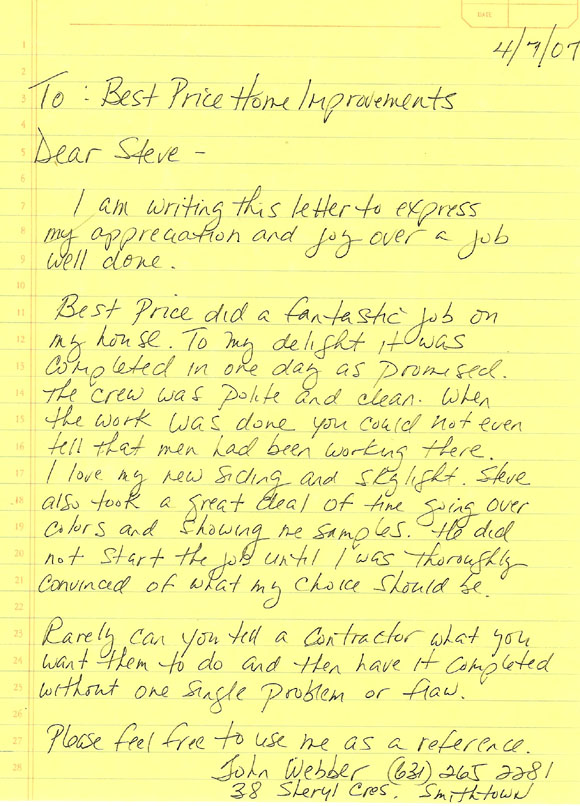 DATE
4/7/07
To: Best Price Home Improvements
Dear Steve -
I am writing this letter to express
my appreciation and joy over a job
well done.
Best Price did a fantastic job on
my house. To my delight it was
completed in one day as promised.
The crew was polite and clean. When
the work was done you could not even
tell that men had been working there.
I love my new siding and skylight. Steve
also took a great deal of time going over
colors and showing me samples. He did
not start the job until I was thoroughly
convinced of what my choice should be.
Rarely can you tell a contractor what you
want them to do and then have it completed
without one single problem or flaw.
Please feel free to use me as a reference.
John Webber (631) 265 2281
38 Sheryl Cres. Smithtown